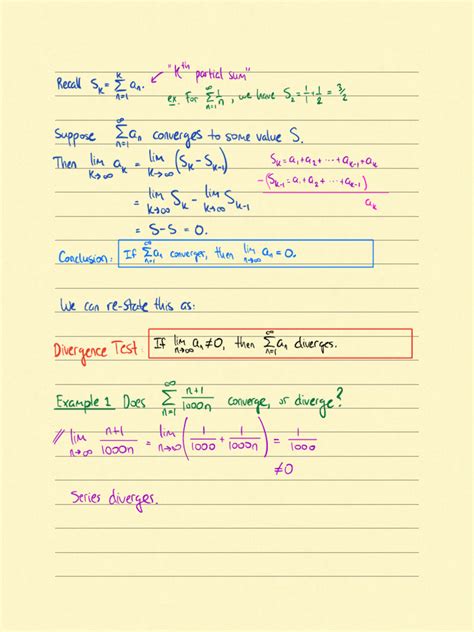 Recall S_k = Σ_{n=1}^{k} a_n. "k^th partial sum"
ex. For Σ_{n=1}^{∞} 1/n, we have S_2 = 1/1 + 1/2 = 3/2
Suppose Σ_{n=1}^{∞} a_n converges to some value S.
Then lim_{k→∞} a_k = lim_{k→∞} (S_k - S_{k-1})
S_k = a_1 + a_2 + ··· + a_{k-1} + a_k
= lim_{k→∞} S_k - lim_{k→∞} S_{k-1}
-(S_{k-1} = a_1 + a_2 + ··· + a_{k-1})
a_k
= S - S = 0.
Conclusion: If Σ_{n=1}^{∞} a_n converges, then lim_{n→∞} a_n = 0.
We can re-state this as:
Divergence Test: If lim_{n→∞} a_n ≠ 0, then Σ_{n=1}^{∞} a_n diverges.
Example 1 Does Σ_{n=1}^{∞} n+1/1000n converge, or diverge?
// lim_{n→∞} n+1/1000n = lim_{n→∞} (1/1000 + 1/1000n) = 1/1000
≠0
Series diverges.